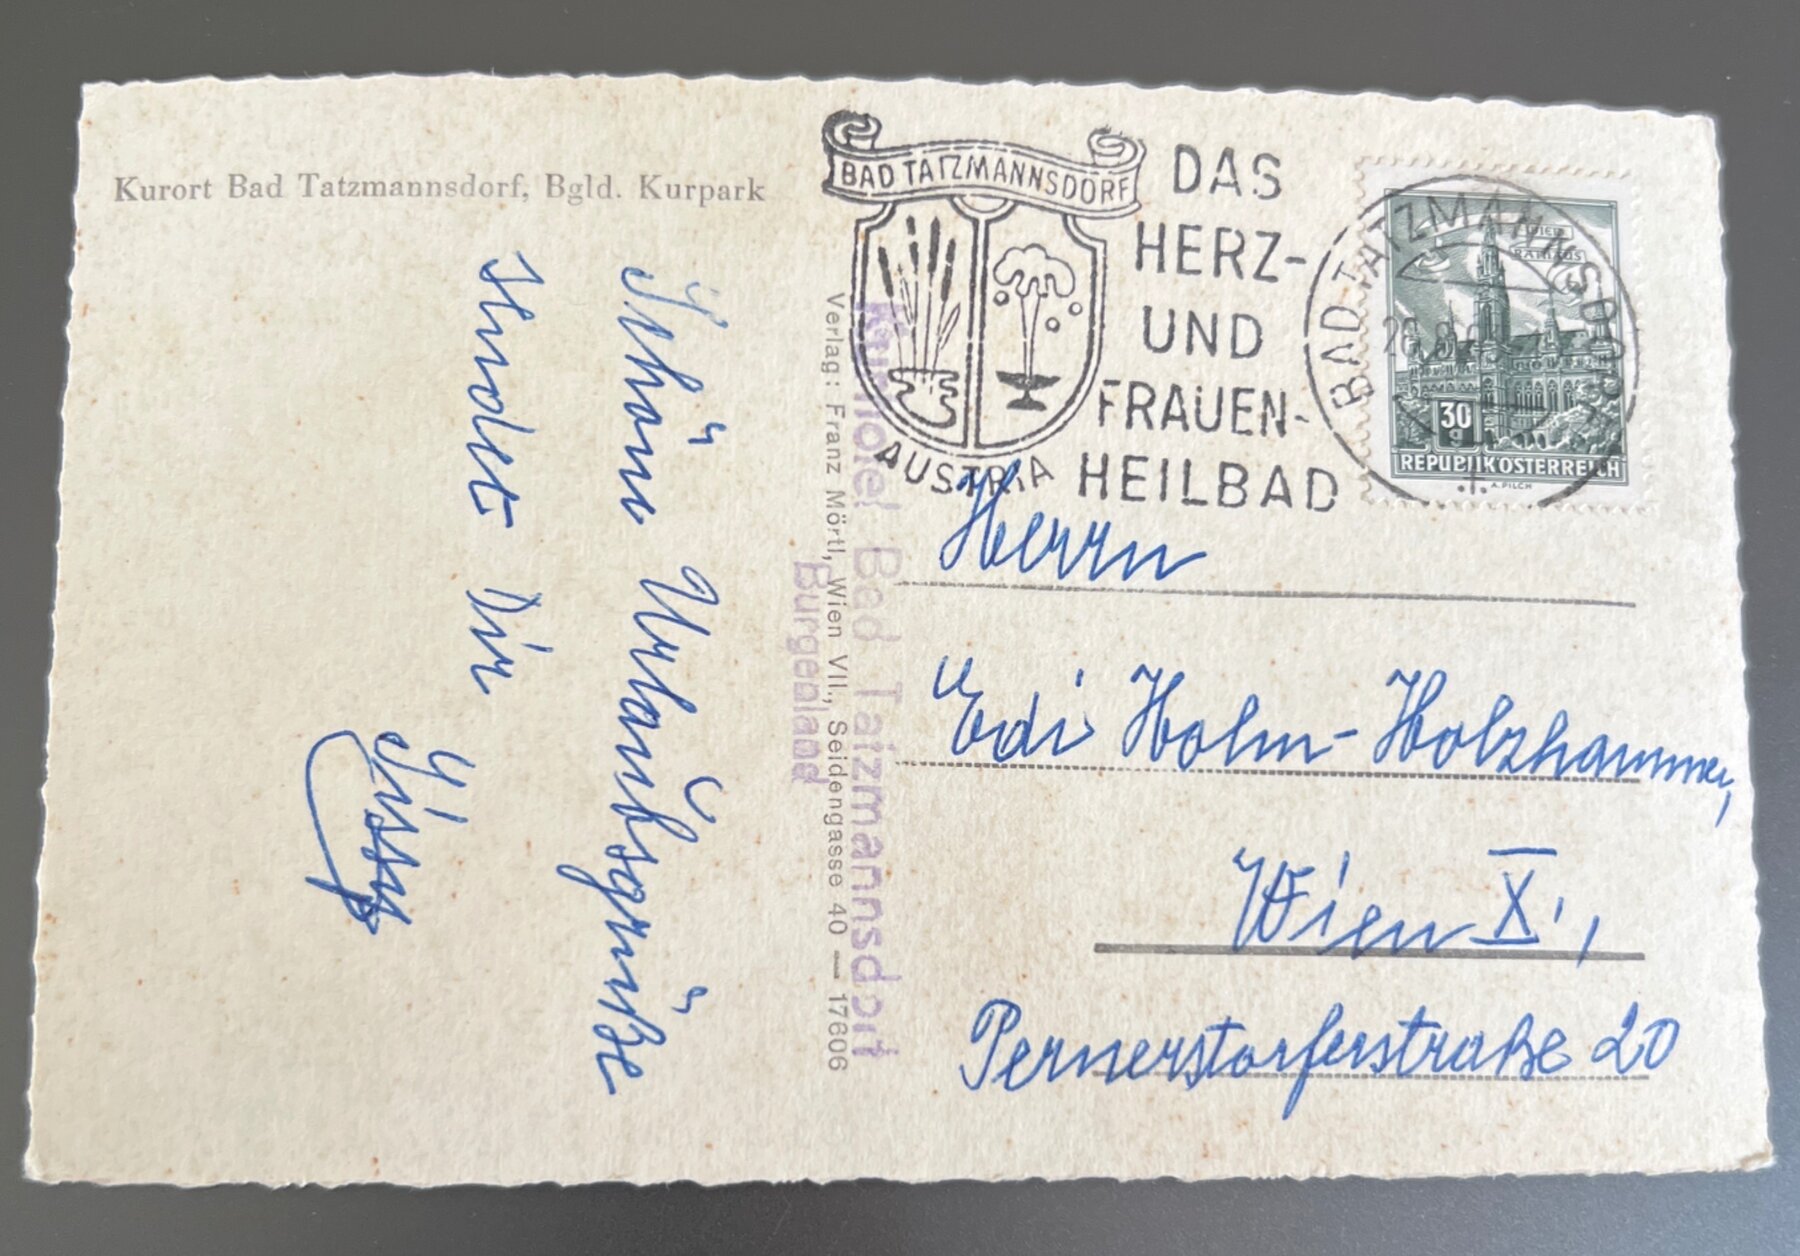 Kurort Bad Tatzmannsdorf, Bgld. Kurpark
Schöne Urlaubsgrüße
sendet Dir
Sissy
Verlag: Franz Mörtl, Wien VII., Seidengasse 40 — 17606
Kurhotel Bad Tatzmannsdorf
Burgenland
BAD TATZMANNSDORF
AUSTRIA
DAS
HERZ-
UND
FRAUEN-
HEILBAD
BAD TATZMANNSDORF
WIEN
RATHAUS
30
g
REPUBLIK ÖSTERREICH
A. PILCH
Herrn
Edi Holm-Holzhammer,
Wien X.,
Pernerstorferstraße 20